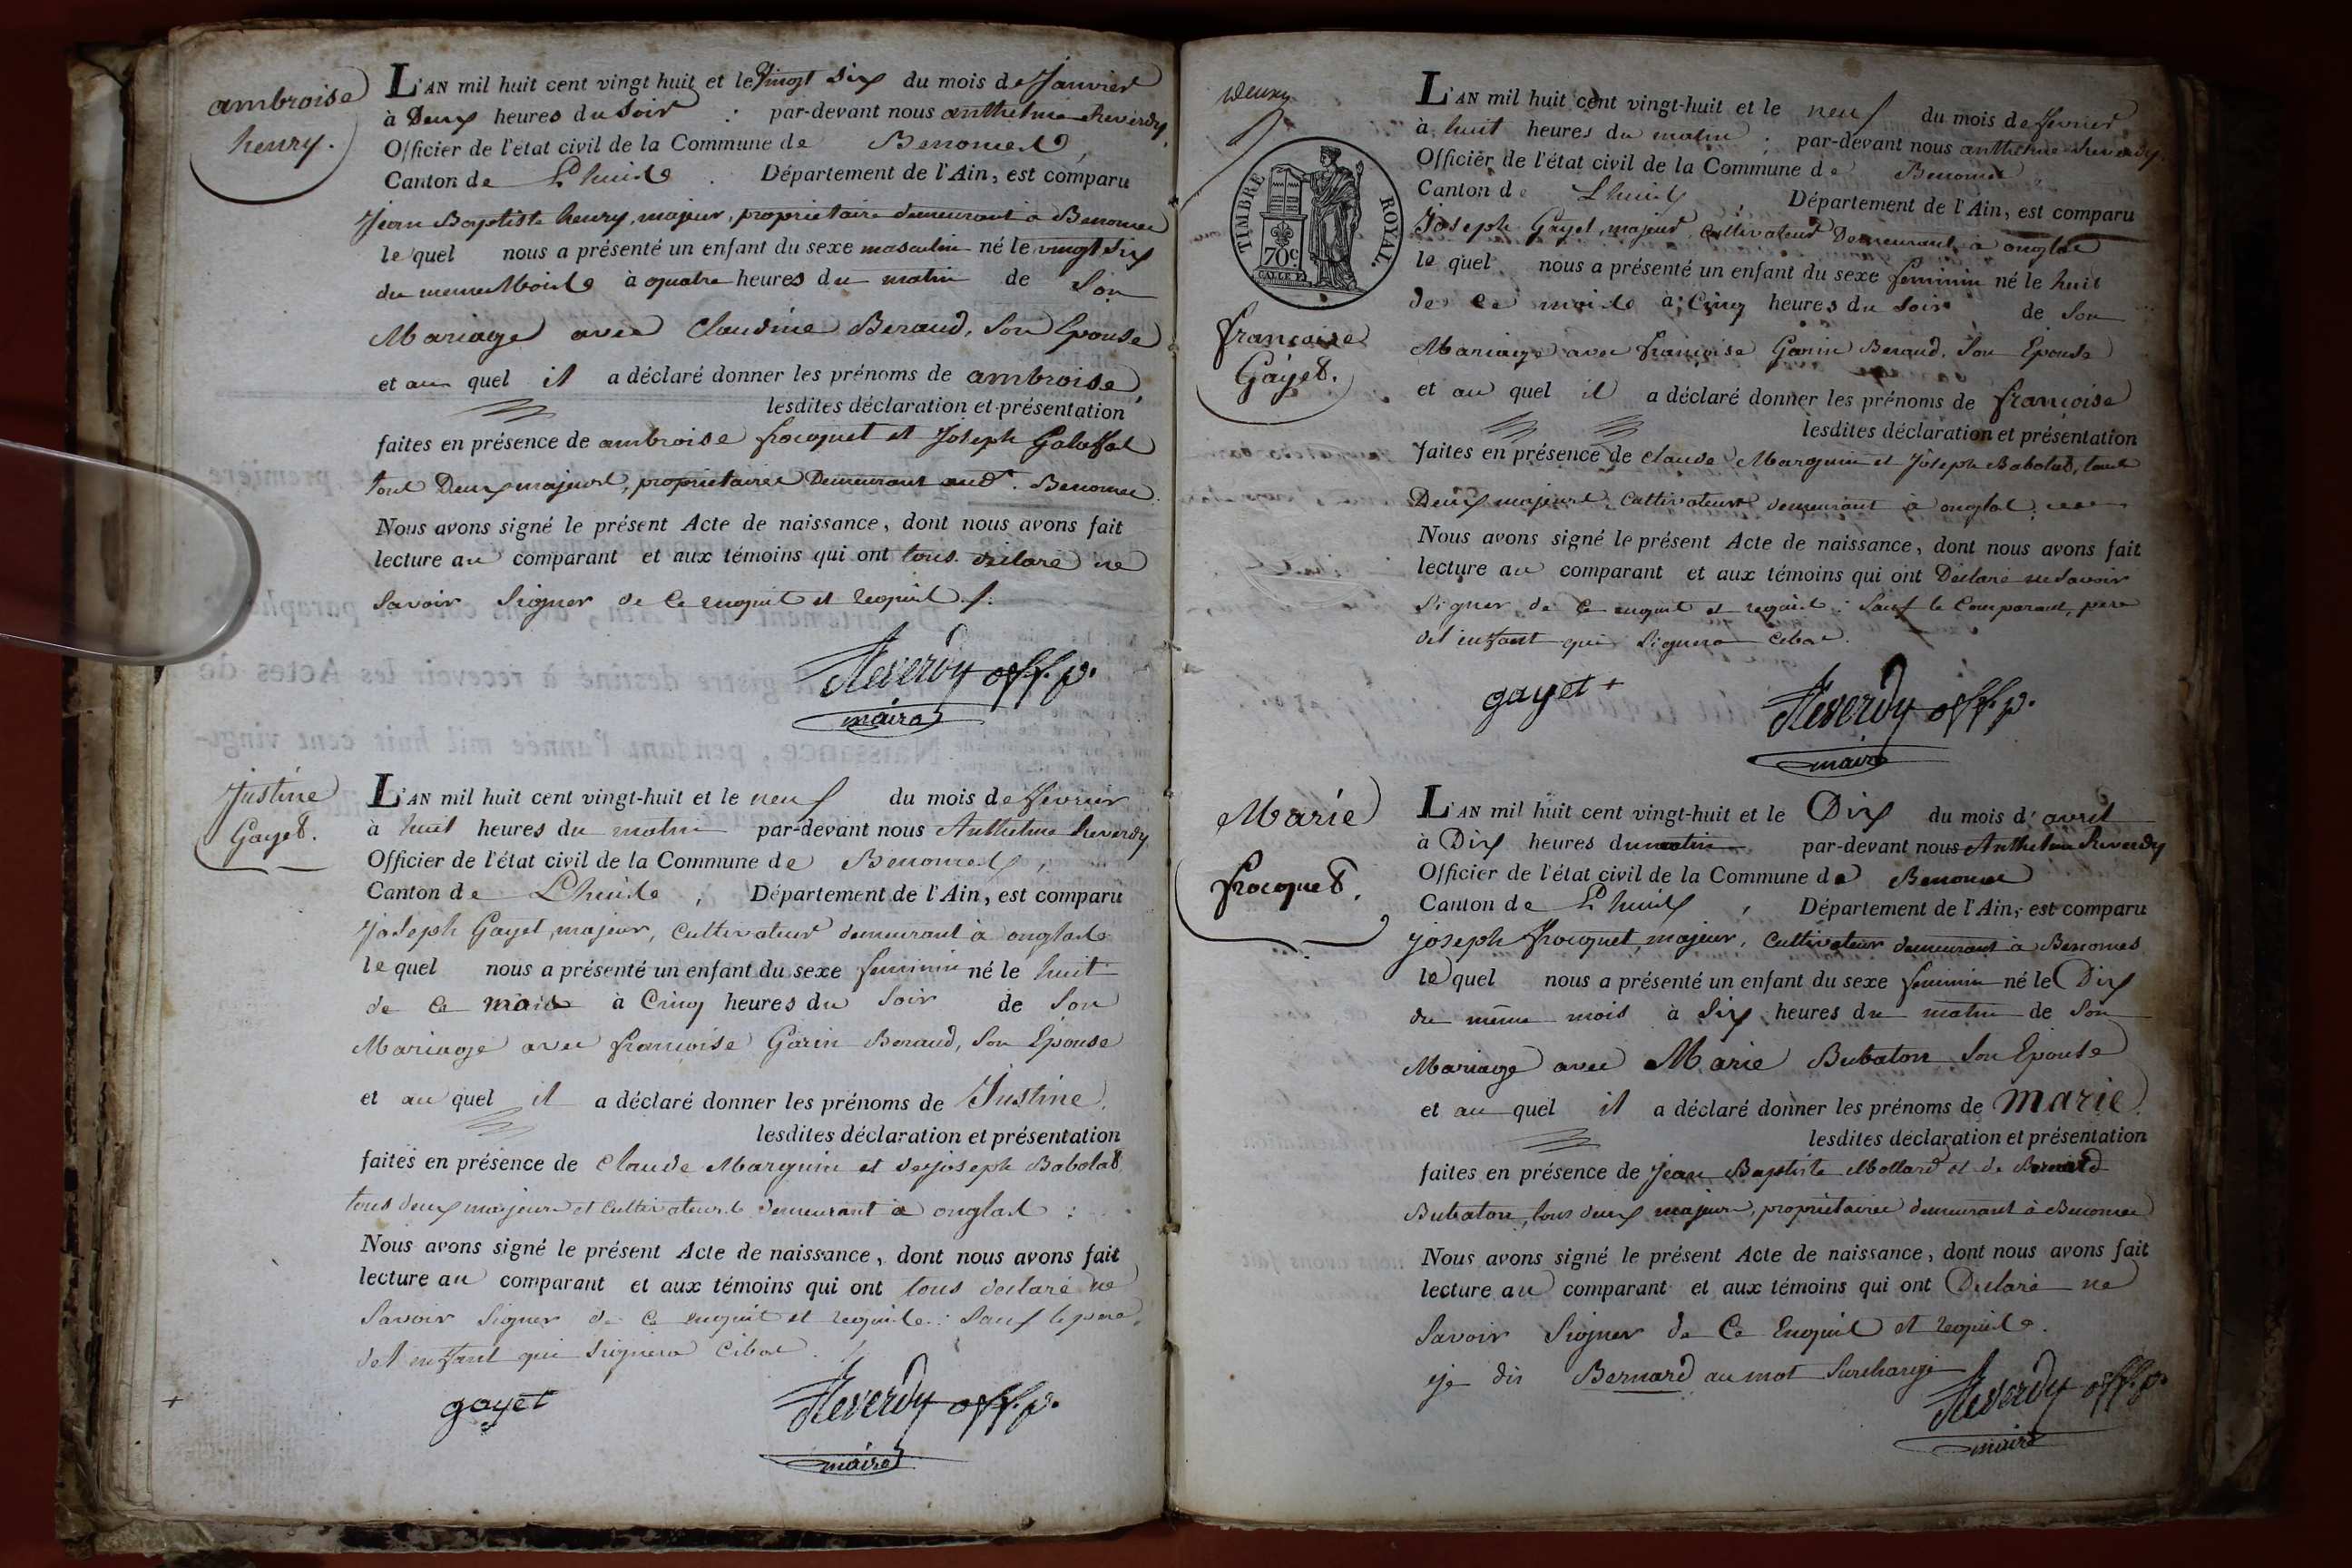 ambroise
henry.
L'AN mil huit cent vingt huit et le vingt six du mois de Janvier
à Deux heures du Soir : par-devant nous anthelme Reverdy,
Officier de l'état civil de la Commune de Benonces,
Canton de Lhuis . Département de l'Ain, est comparu
Jean Baptiste henry, majeur, propriétaire demeurant à Benonces
le quel nous a présenté un enfant du sexe masculin né le vingt six
du meme Mois à quatre heures du matin de Son
Mariage avec Claudine Beraud, Son Epouse
et au quel il a déclaré donner les prénoms de ambroise,
lesdites déclaration et présentation
faites en présence de ambroise frocquet et Joseph
tout Deux majeurs, propriétaires Demeurant aud. Benonces.
Nous avons signé le présent Acte de naissance, dont nous avons fait
lecture au comparant et aux témoins qui ont tous déclaré ne
Savoir Signer de Ce enquit et requis
Reverdy off. p.
maire
Justine
Gayet.
L'AN mil huit cent vingt-huit et le neuf du mois de fevrier
à huit heures du matin par-devant nous Anthelme Reverdy
Officier de l'état civil de la Commune de Benonces,
Canton de Lhuis , Département de l'Ain, est comparu
Joseph Gayet, majeur, Cultivateur demeurant à onglas
le quel nous a présenté un enfant du sexe feminin né le huit
de Ce mois à Cinq heures du Soir de Son
Mariage avec françoise Garin Beraud, Son Epouse
et au quel il a déclaré donner les prénoms de Justine,
lesdites déclaration et présentation
faites en présence de Claude Marguin et de joseph Babolat
tous deux majeurs et Cultivateurs demeurant à onglas :
Nous avons signé le présent Acte de naissance, dont nous avons fait
lecture au comparant et aux témoins qui ont tous déclaré ne
Savoir Signer de Ce enquit et requis : Sauf le pere
del enfant qui Signera Cibas.
gayet
Reverdy off. p.
maire
Deux
TIMBRE ROYAL.
70c
françoise
Gayet.
L'AN mil huit cent vingt-huit et le neuf du mois de fevrier
à huit heures du matin ; par-devant nous anthelme Reverdy,
Officier de l'état civil de la Commune de Benonces
Canton de Lhuis , Département de l'Ain, est comparu
Joseph Gayet, majeur, Cultivateur Demeurant à onglas
le quel nous a présenté un enfant du sexe feminin né le huit
de Ce mois à Cinq heures du Soir de Son
Mariage avec françoise Garin Beraud, Son Epouse
et au quel il a déclaré donner les prénoms de françoise
lesdites déclaration et présentation
faites en présence de Claude Marguin et Joseph Babolat, tout
Deux majeurs, Cultivateurs demeurant à onglas.
Nous avons signé le présent Acte de naissance, dont nous avons fait
lecture au comparant et aux témoins qui ont Déclaré ne Savoir
Signer, de Ce enquit et requis : Sauf le Comparant, pere
del enfant qui Signera cibas.
gayet +
Reverdy off. p.
maire
Marie
frocquet.
L'AN mil huit cent vingt-huit et le Dix du mois d'avril
à Dix heures du matin par-devant nous Anthelme Reverdy
Officier de l'état civil de la Commune de Benonces
Canton de Lhuis , Département de l'Ain, est comparu
joseph frocquet, majeur, Cultivateur demeurant à Benonces
le quel nous a présenté un enfant du sexe feminin né le Dix
du même mois à Six heures du matin de Son
Mariage avec Marie Bubaton Son Epouse
et au quel il a déclaré donner les prénoms de Marie
lesdites déclaration et présentation
faites en présence de Jean Baptiste Mollard et de Bernard
Bubaton, tous deux majeurs, propriétaires demeurant à Benonces
Nous avons signé le présent Acte de naissance, dont nous avons fait
lecture au comparant et aux témoins qui ont Déclaré ne
Savoir Signer de Ce Enquis et requis.
eje dis Bernard au mot Surchargé
Reverdy off. p.
maire